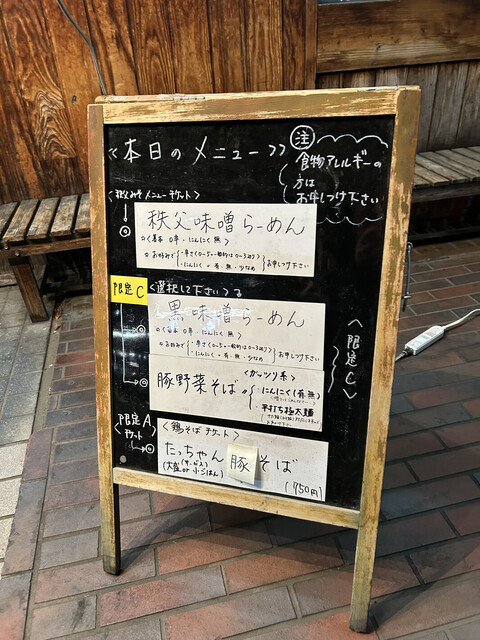 《本日のメニュー》
注
食物アレルギーの
方は
お申しつけ下さい
〈秩父みそメニューチケット〉
秩父味噌らーめん
☆〈基本 0辛・にんにく無〉
☆お好みで
・辛さ0~5(一般的は0~3辺り)
・にんにく・有・無・少なめ
お申しつけ下さい
限定C
〈選択して下さい〉
黒味噌らーめん
☆〈基本 0辛・にんにく無〉
☆お好みで
・辛さ0~5(一般的は0~3辺り)
・にんにく・有・無・少なめ
お申しつけ下さい
〈限定C〉
〈ガッツリ系〉
豚野菜そば
・にんにく(有・無)
・平打ち極太麺
限定A
チケット
〈鶏そばチケット〉
たっちゃん豚そば
(大盛or小ごはん)
(750円)